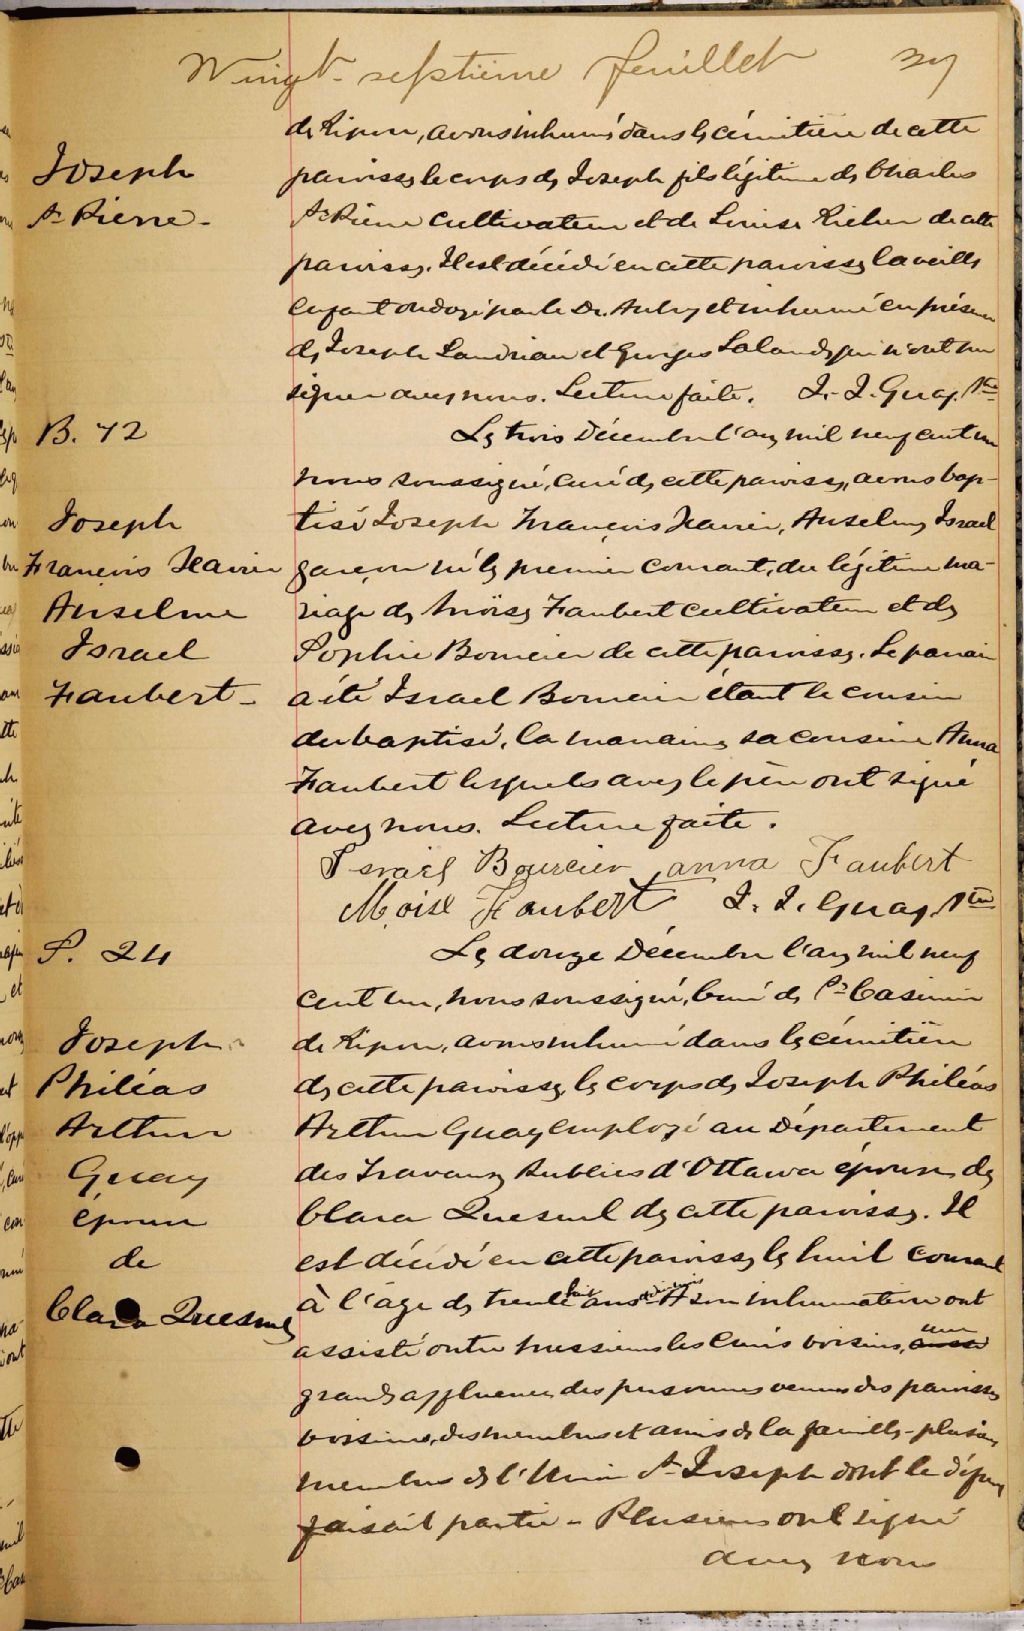 Vingt-septième feuillet 27
de Ripon, avons inhumé dans le cémitière de cette
Joseph
paroisse le corps de Joseph fils légitime de Charles
St Pierre -
St Pierre cultivateur et de Louise Richer de cette
paroisse. Il est décédé en cette paroisse la veille
Enfant ondoyé par le Dr. Aubry et inhumé en présence
de Joseph Landriau et Georges Lalande qui n'ont su
signer avec nous. Lecture faite. J. J. Guay, Ptre
B. 72
Le trois Décembre l'an mil neuf cent un
nous soussigné, curé de cette paroisse, avons bap-
Joseph
tisé Joseph François Xavier, Anselme Israel
François Xavier
garçon né le premier courant, du légitime ma-
Anselme
riage de Moïse Faubert cultivateur et de
Israel
Sophie Bourcier de cette paroisse. Le parrain
Faubert -
a été Israel Bourcier étant le cousin
du baptisé, la marraine sa cousine Anna
Faubert lesquels avec le père ont signé
avec nous. Lecture faite.
Israël Bourcier anna Faubert
Moise Faubert J. J. Guay, Ptre
S. 24
Le douze Décembre l'an mil neuf
cent un, nous soussigné, Curé de St Casimir
Joseph
de Ripon, avons inhumé dans le cémitière
Philéas
de cette paroisse, le corps de Joseph Philéas
Arthur
Arthur Guay employé au Département
Guay
des Travaux Publics d'Ottawa époux de
époux
Clara Quesnel de cette paroisse. Il
de
est décédé en cette paroisse le huit courant
Clara Quesnel
à l'âge de trente ans A son inhumation ont
assisté outre messieurs les Curés voisins, une
grande affluence des personnes venues des paroisses
voisines, des membres et amis de la famille - plusieurs
membres de l'Union St Joseph dont le défunt
faisait partie - Plusieurs ont signé
avec nous